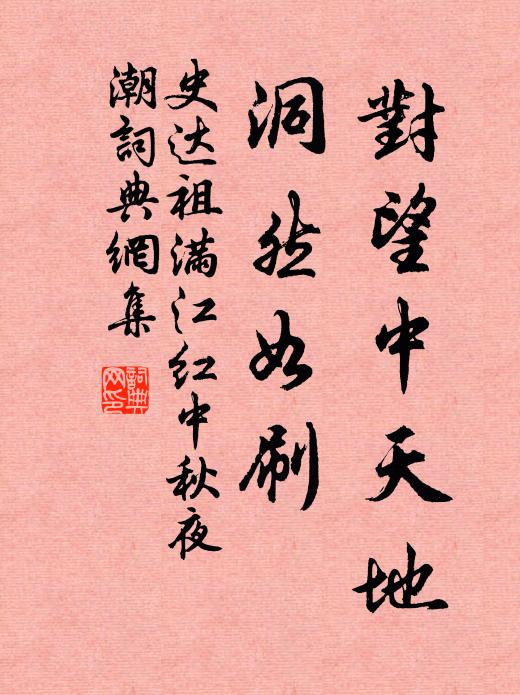 對望中天地
洞然如刷
史达祖满江红中秋夜
潮詞典網集
詞典網印